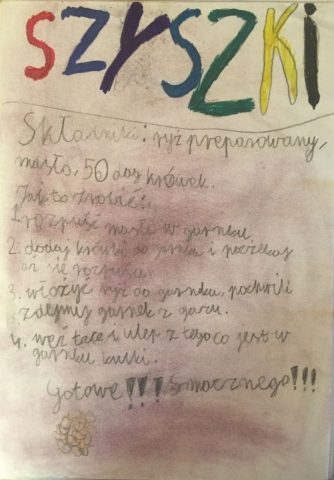 SZYSZKI
Składniki: ryż preparowany,
masło, 50 dag krówek.
Jak to zrobić:
1. rozpuść masło w garnku.
2. dodaj krówki do garnka i poczekaj
aż się rozpuszą.
3. włożyć ryż do garnka, po chwili
zdejmij garnek z gazu.
4. weź łaće i ulep z tego co jest w
garnku kulki.
Gotowe!!! Smacznego!!!